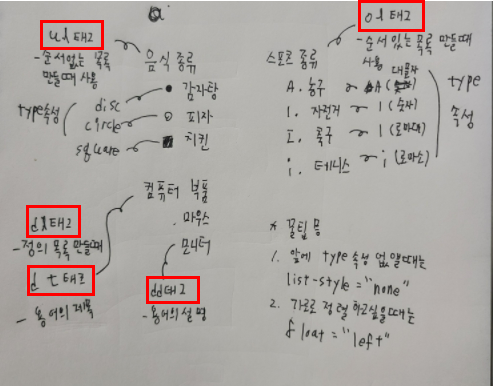 a
ul태그
-순서없는 목록
만들때 사용
음식 종류
type속성
disc
circle
square
감자탕
피자
치킨
ol태그
-순서 있는 목록 만들때
사용
스포츠 종류
A. 농구 A (대문자)
1. 자전거 1 (숫자)
I. 족구 I (로마대)
i. 테니스 i (로마소)
type
속성
컴퓨터 부품
.마우스
모니터
dl태그
-정의 목록 만들때
dt태그
-용어의 제목
dd태그
-용어의 설명
* 꿀팁 등
1. 앞에 type 속성 없앨때는
list-style="none"
2. 가로로 정렬 하고싶을때는
float="left"